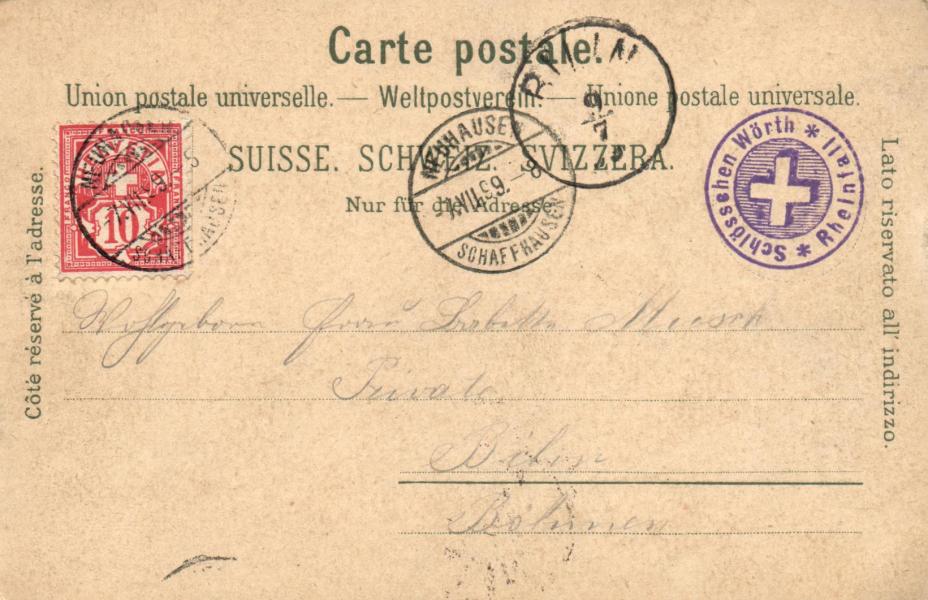 Carte postale.
Union postale universelle. — Weltpostverein. — Unione postale universale.
SUISSE. SCHWEIZ. SVIZZERA.
Nur für die Adresse.
Côté réservé à l'adresse.
Lato riservato all' indirizzo.
10
FRANCO
NEUHAUSEN
SCHAFFHAUSEN
NEUHAUSEN
7.VII.99. 8
SCHAFFHAUSEN
9/7
Schlösschen Wörth * Rheinfall *
Wohlgeborn Frau Babette
Private
Bilin
Böhmen